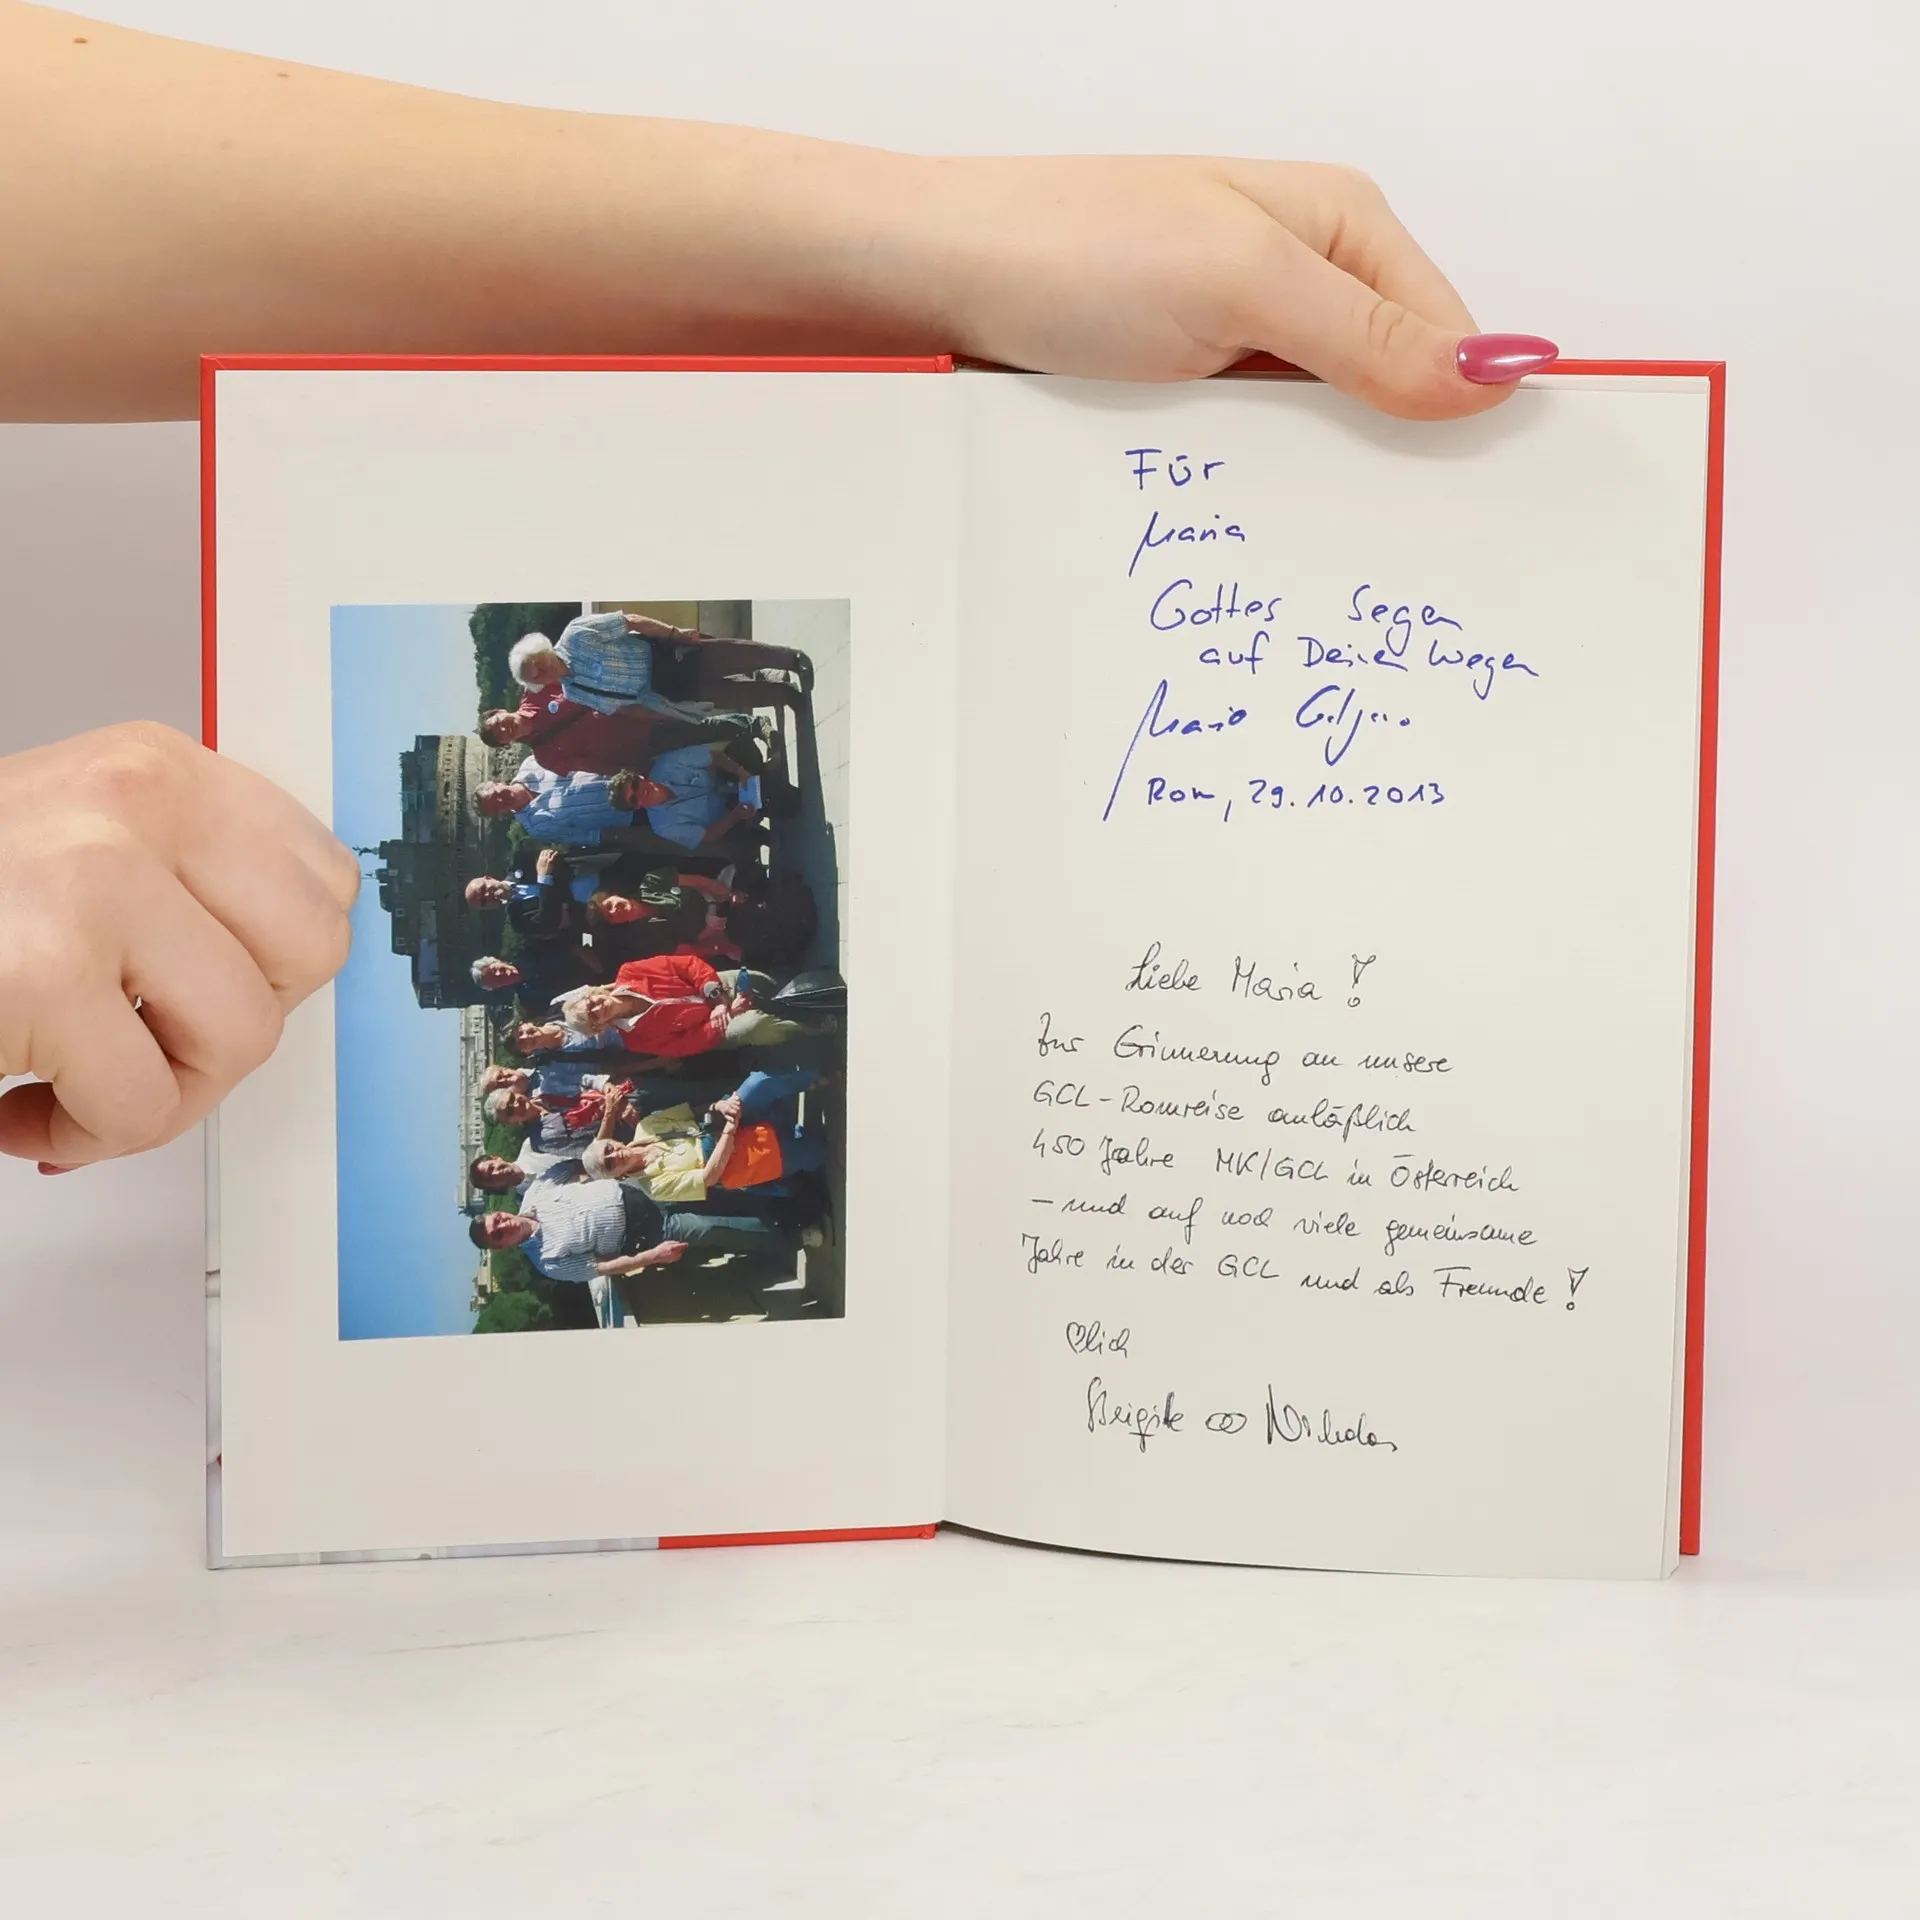 Für
Maria
Gottes Segen
auf Deinen Wegen
Mario
Rom, 29.10.2013
Liebe Maria!
Zur Erinnerung an unsere
GCL-Romreise anläßlich
450 Jahre MK/GCL in Österreich
– und auf noch viele gemeinsame
Jahre in der GCL und als Freunde!
♡lich
Brigitte ∞ Nikolaus